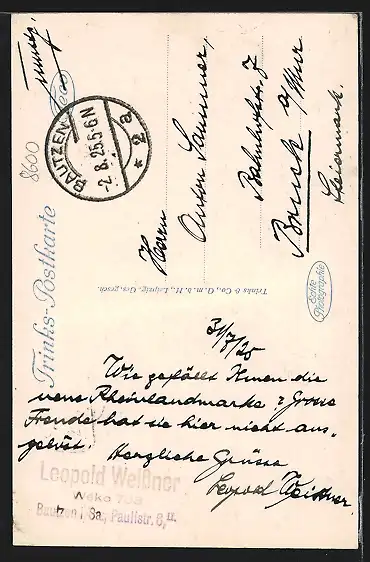 Trinks-Postkarte
8600
BAUTZEN
-2.8.25.5-6N
* 2 a
Herrn
Anton Sammer,
Bahnhofstr. 7
Bruck a/Mur
Steiermark.
Trinks & Co., G. m. b. H., Leipzig. Ges. gesch.
Echte
Photographie
31/7/25
Wie gefällt Ihnen die
neue Rheinlandmarke? Grosse
Freude hat sie hier nicht aus-
gelöst. Herzliche Grüsse
Leopold Weißner
Leopold Weißner
Weka 703
Bautzen i. Sa., Paulistr. 6, II.